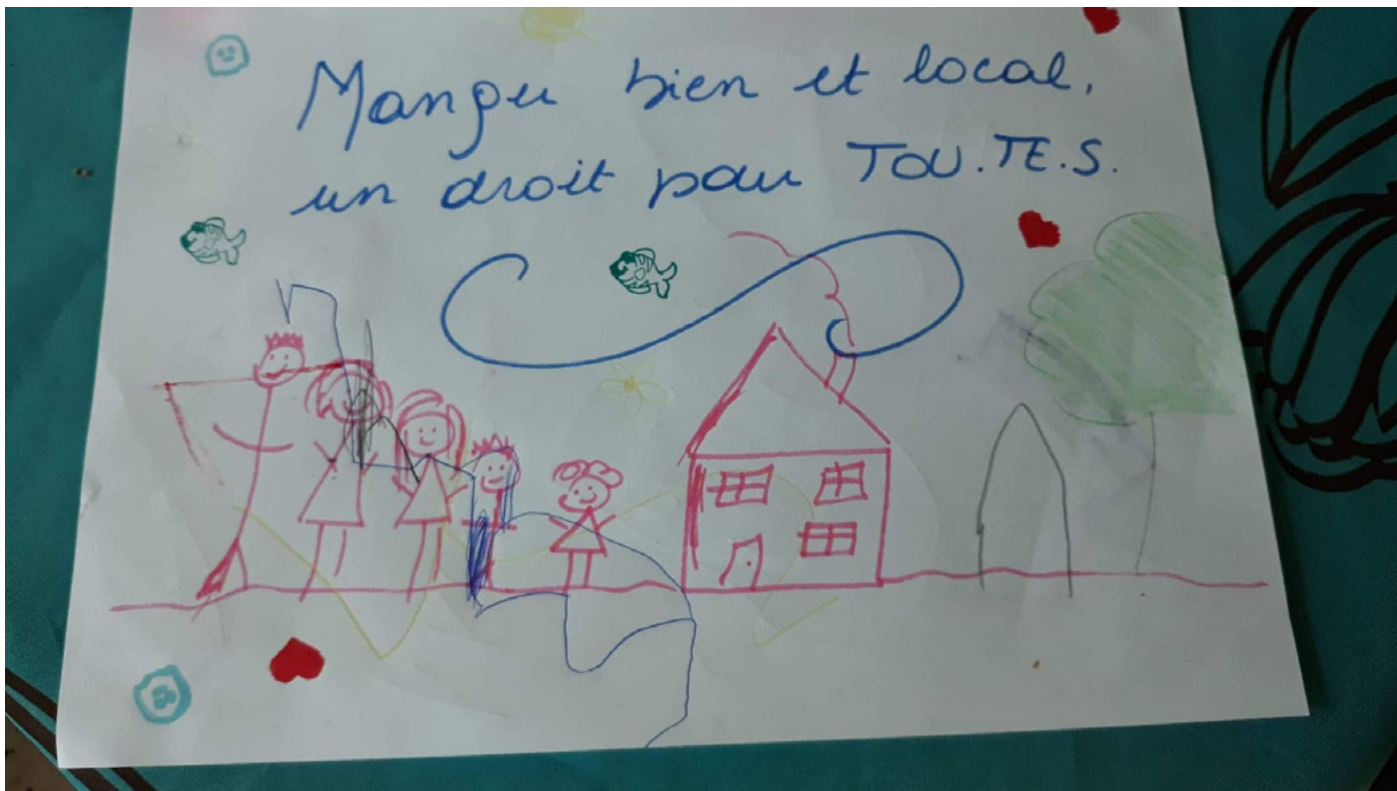 Manger bien et local,
un droit pour TOU.TE.S.